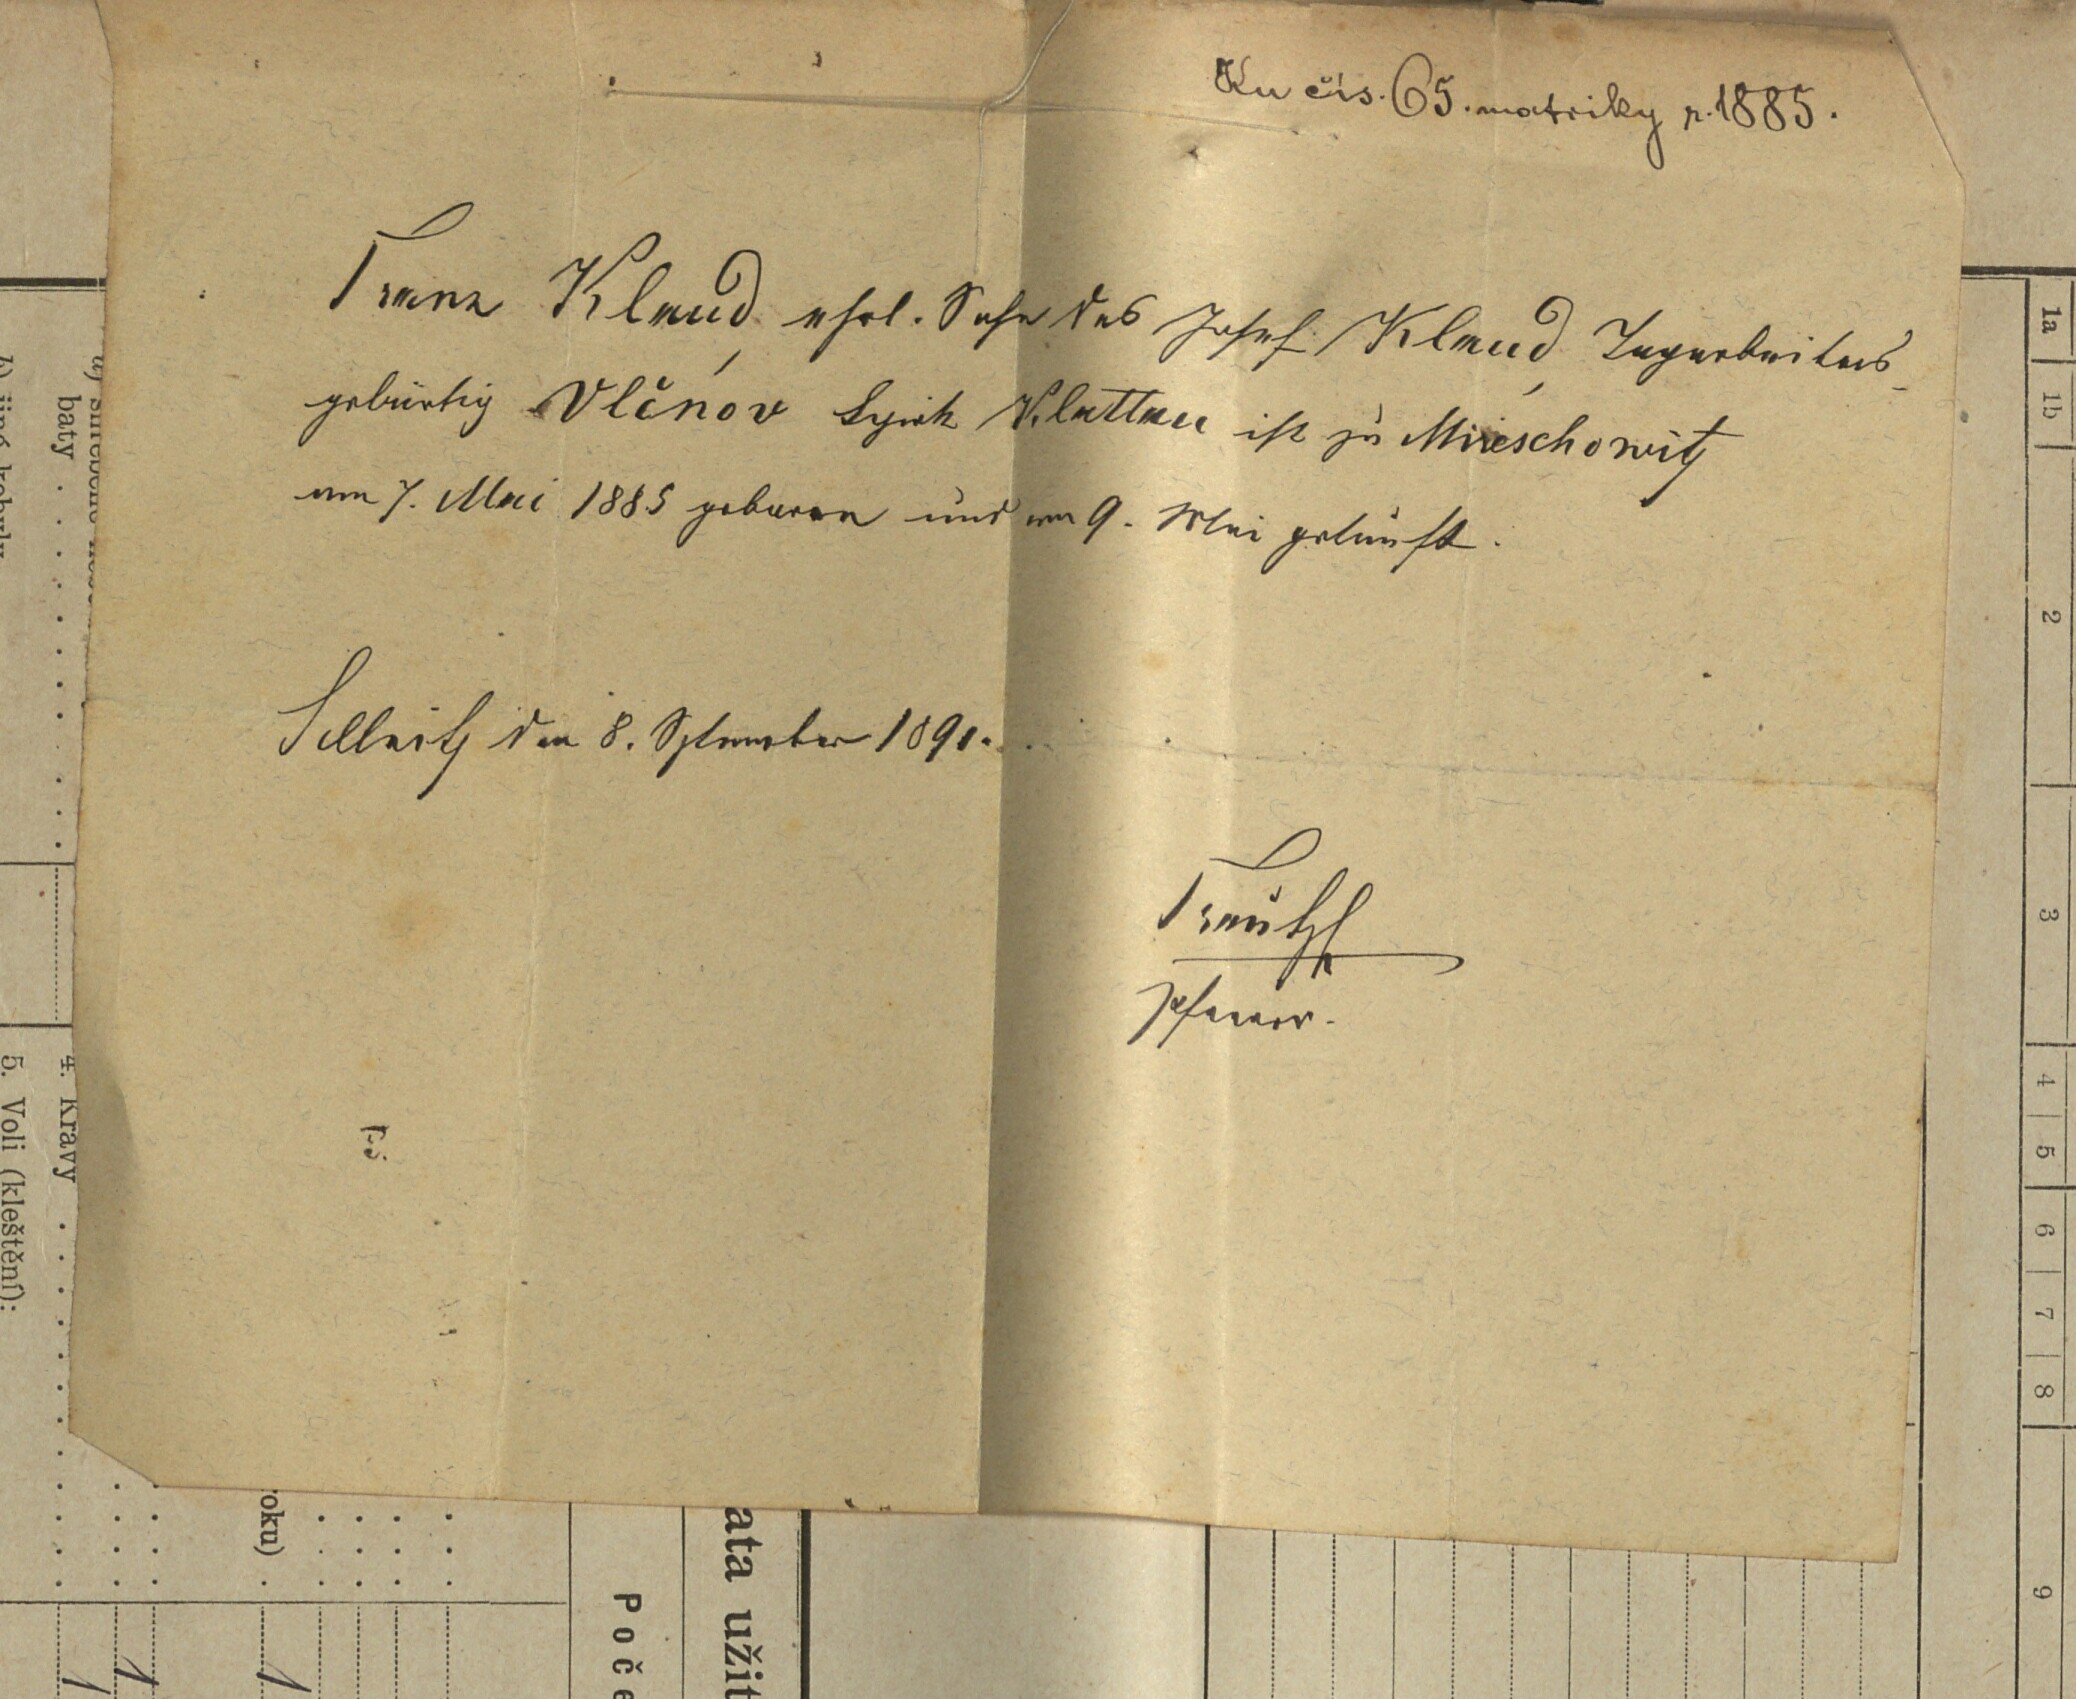 Ku čís. 65. matriky r. 1885.
Franz Klaud ehel. Sohn des Josef Klaud Tagarbeiters
gebürtig Vlčnov Bezirk Klattau ist zu Mireschowitz
am 7. Mai 1885 geboren und am 9. Mai getauft.
Sellnitz den 8. September 1891.
Pfarrer.
baty
4. Krávy
5. Voli (kleštění):
roku)
ata užit
Poče
1a
1b
2
3
4
5
6
7
8
9
1
1
1